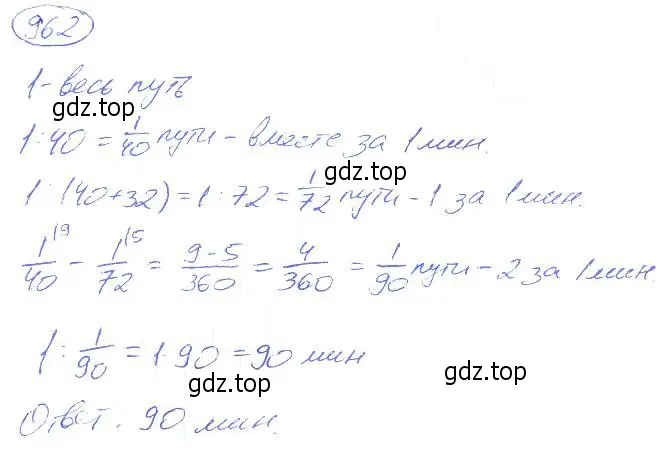 962
1 - весь путь
gdz.top
1 : 40 = 1/40 пути - вместе за 1 мин.
gdz.top
1 : (40+32) = 1 : 72 = 1/72 пути - 1 за 1 мин.
1/40 ⁹ - 1/72 ⁵ = 9-5/360 = 4/360 = 1/90 пути - 2 за 1 мин.
gdz.top
1 : 1/90 = 1 · 90 = 90 мин
gdz.top
gdz.top
Ответ: 90 мин.